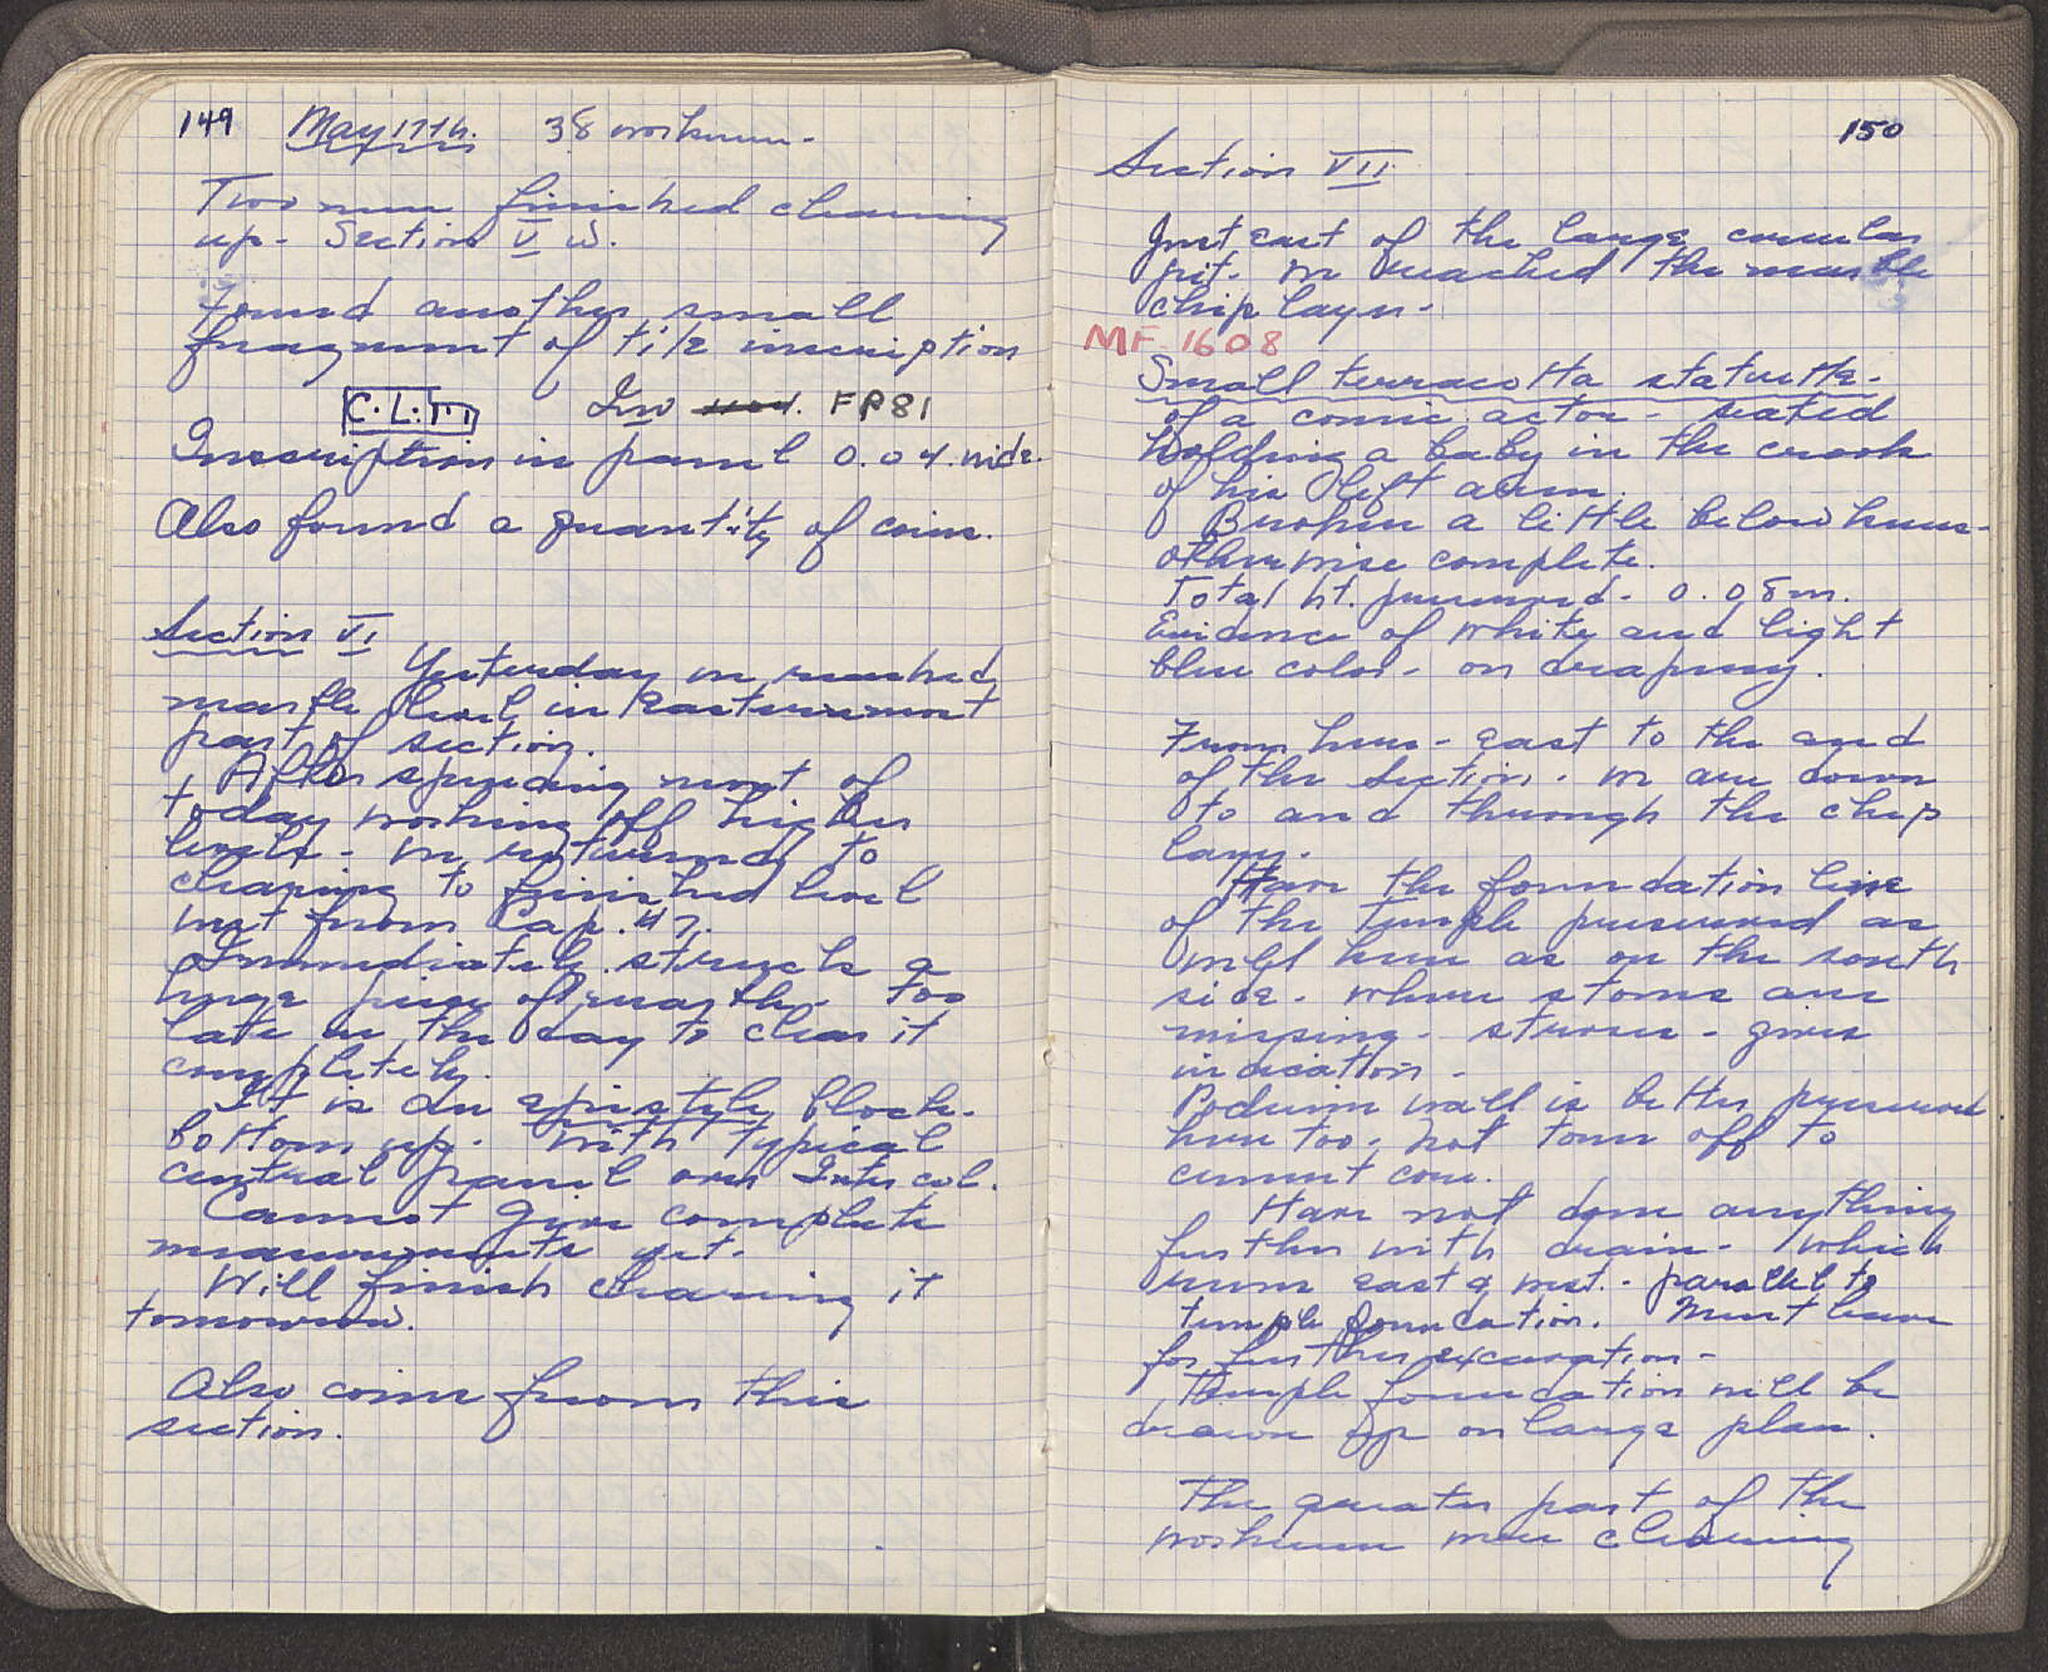 149 May 17th. 38 workmen-
Two men finished cleaning
up- Section V W.
Found another small
fragment of tile inscription
C·L:III Inv FP81
Inscription in panel 0.04 wide.
Also found a quantity of coins.
Section VI
Yesterday we reached
marble level in Easternmost
part of section.
After spending most of
today working off higher
levels- we returned to
cleaning to finished level
west from Cap. #7.
Immediately struck a
huge piece of marble- too
late in the day to clear it
completely.
It is an epistyle block-
bottom up- with typical
central panel over Inter col.
Cannot give complete
measurements yet.
Will finish clearing it
tomorrow.
Also coins from this
section.
150
Section VII
Just east of the large circular
pit- we reached the marble
chip layer-
MF-1608
Small terracotta statuette-
of a comic actor- seated
holding a baby in the crook
of his left arm.
Broken a little below knees-
otherwise complete.
Total ht. preserved- 0.08m.
Evidence of white and light
blue color- on drapery.
From here- east to the end
of the section- we are down
to and through the chip
layer.
Have the foundation line
of the temple preserved as
well here as on the south
side- where stones are
missing- stereo- gives
indication-
Podium wall is better preserved
here too- not torn off to
cement core.
Have not done anything
further with drain- which
runs east & west- parallel to
temple foundation. Must leave
for further excavation-
Temple foundation will be
drawn up on large plan.
The greater part of the
workmen were cleaning